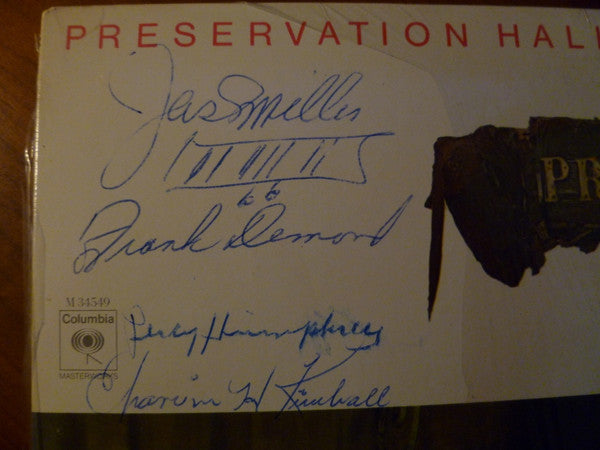 PRESERVATION HALL
Jas Miller
Frank Demond
M 34549
Columbia
MASTERWORKS
Percy Humphrey
Narvin H Kimball
PR